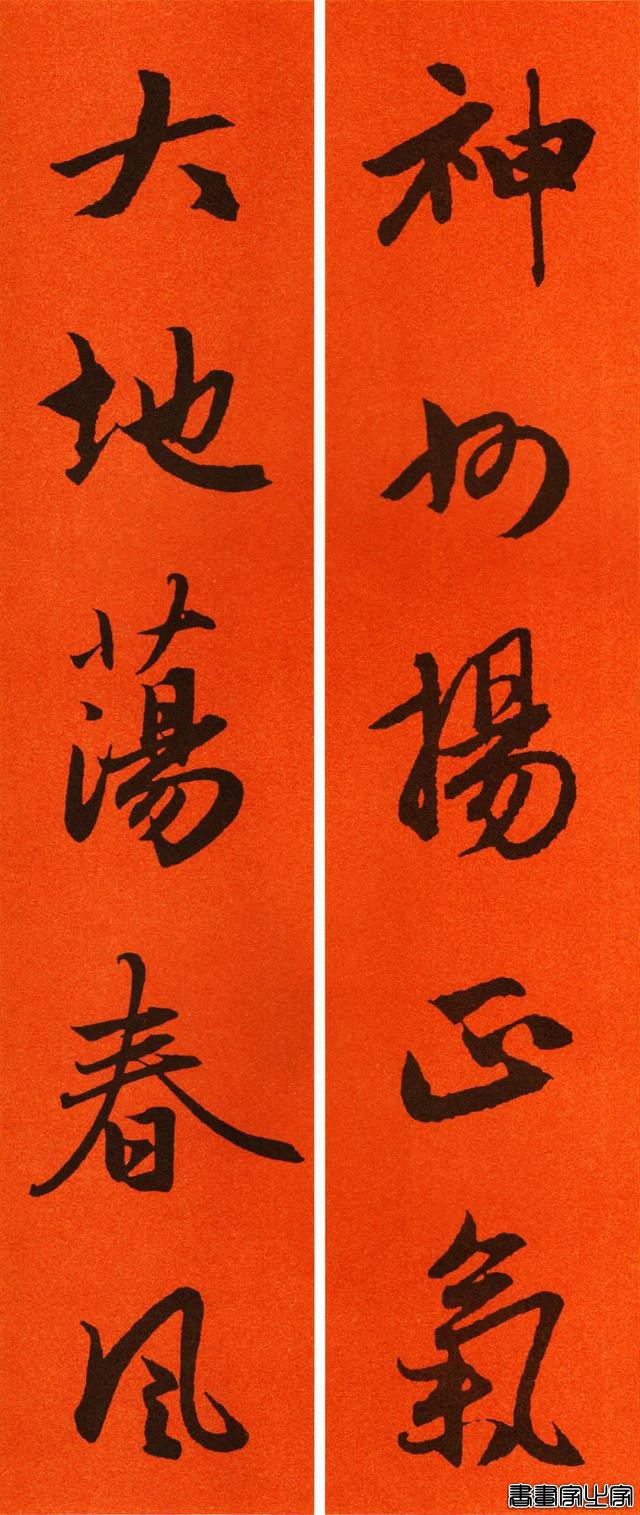 神州揚正氣
大地蕩春風
書畫家必字